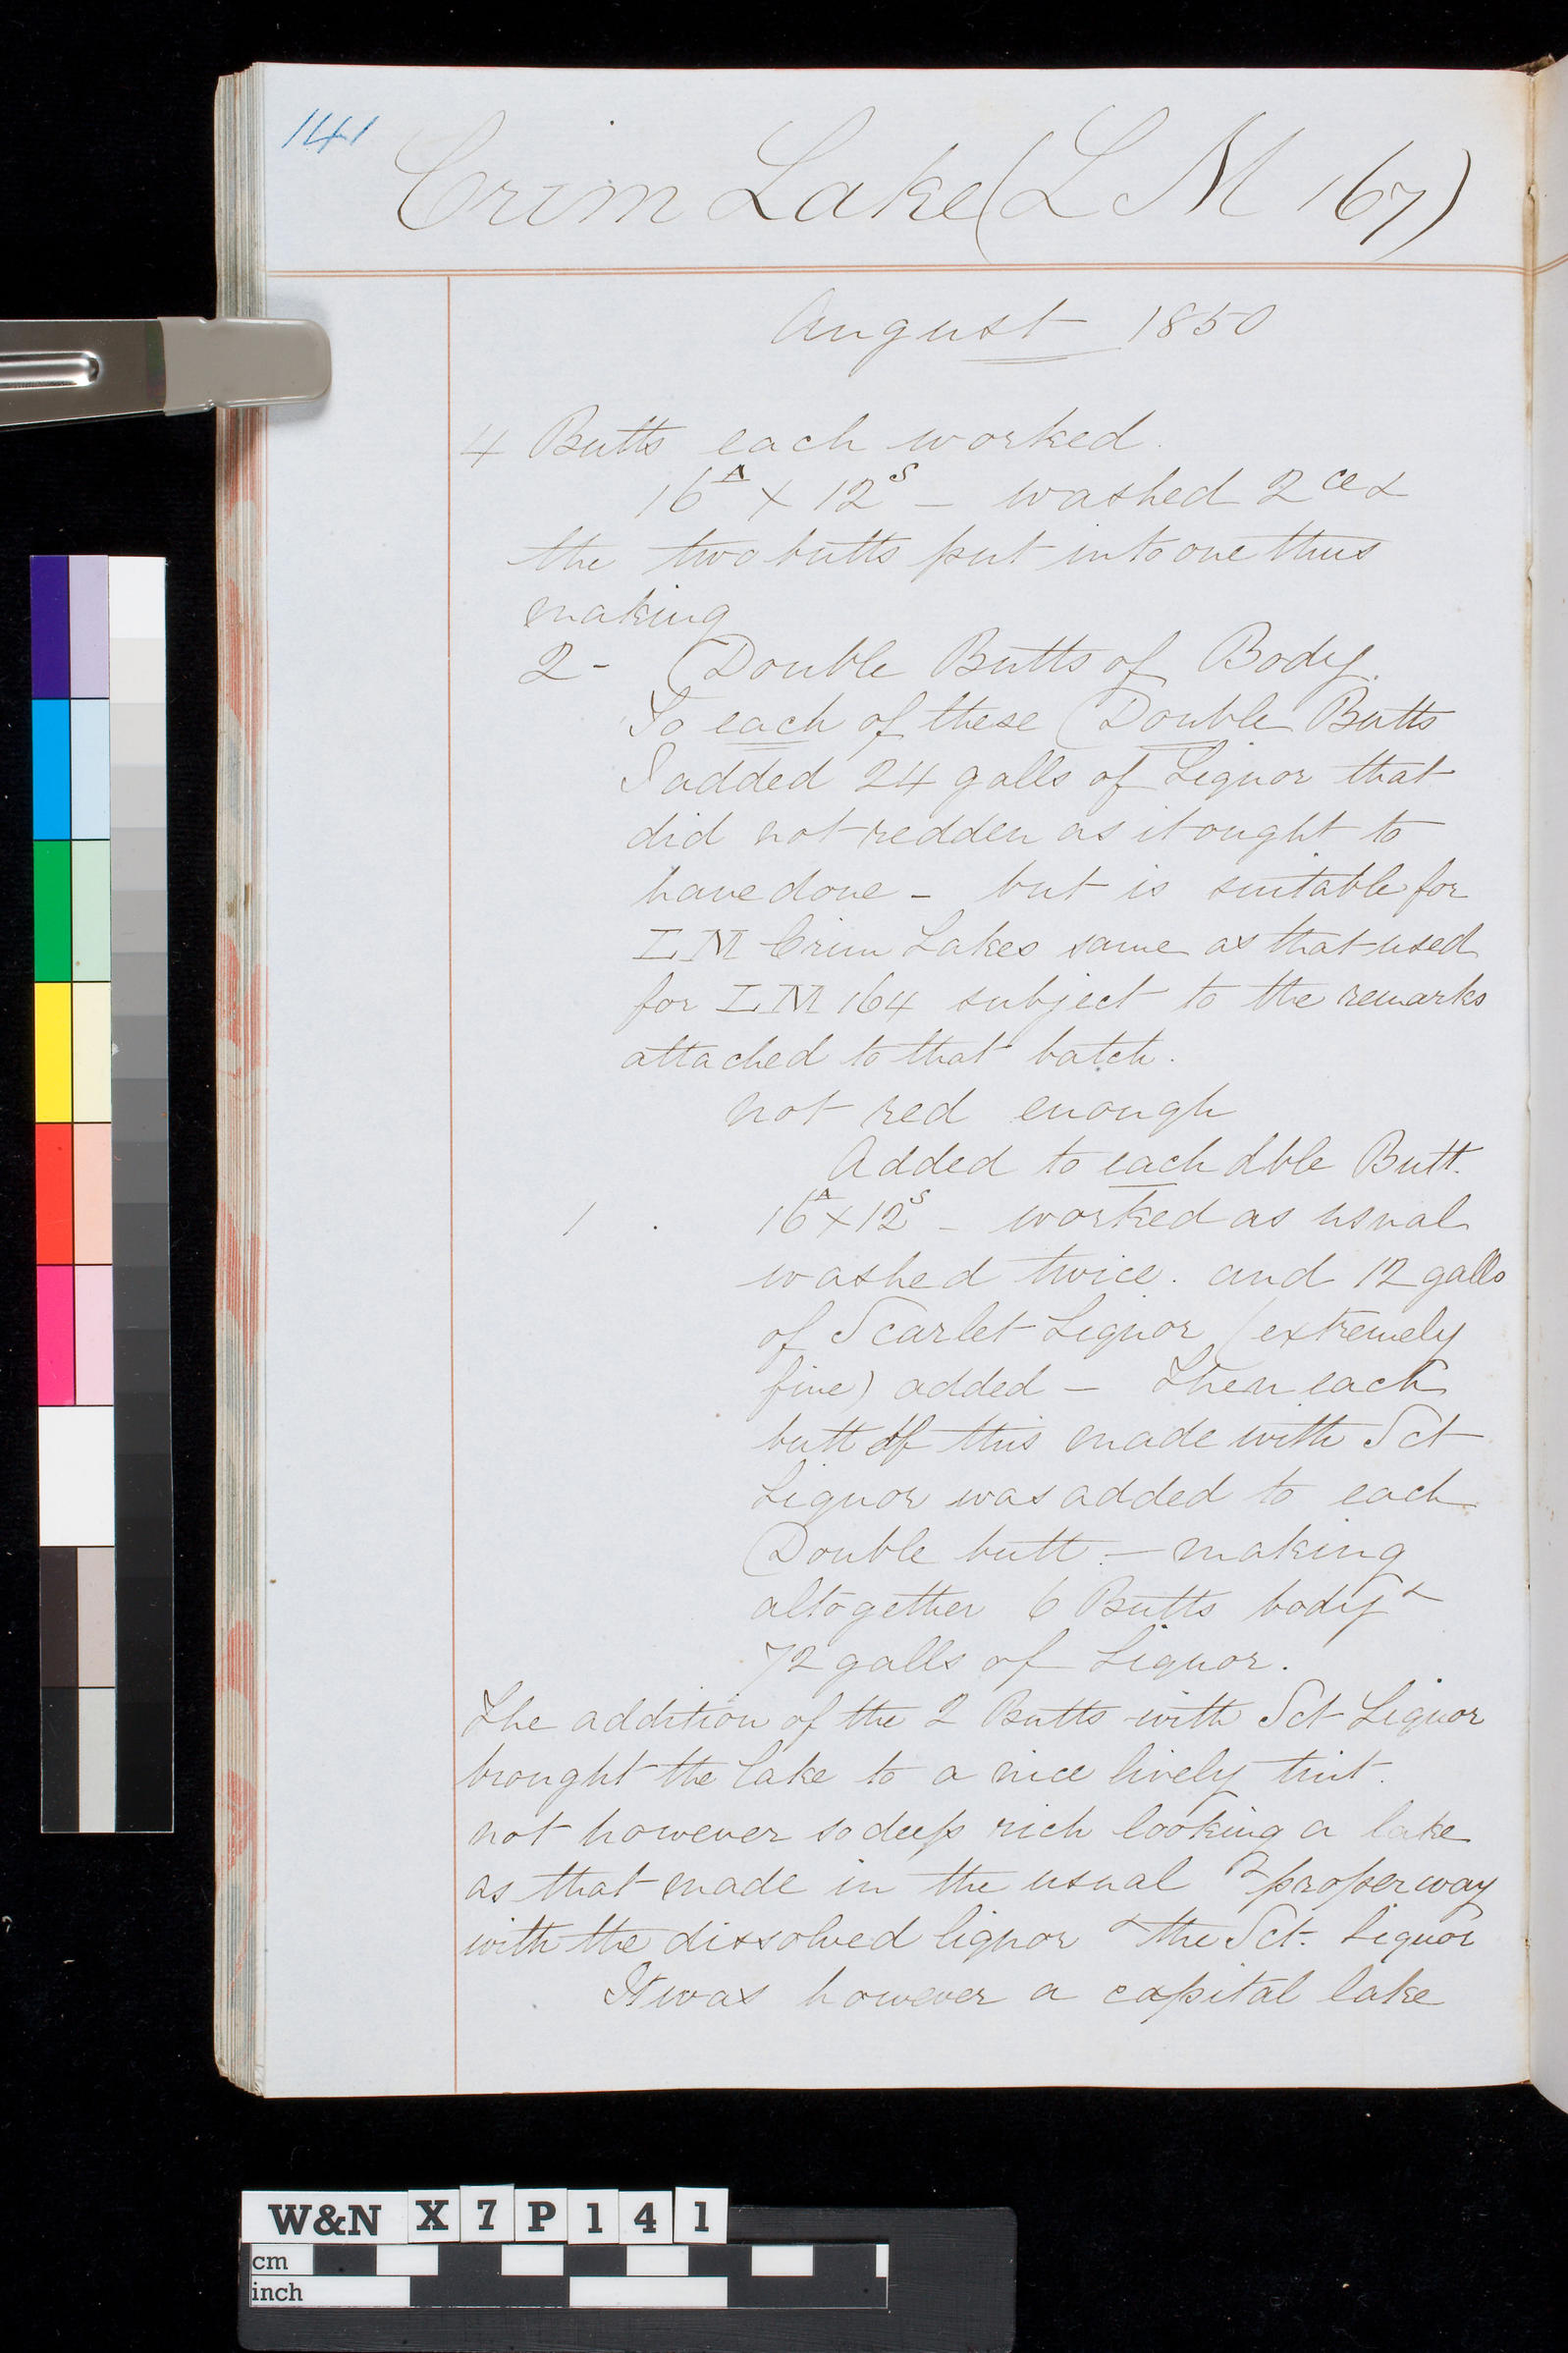 141
Crim Lake (LM 167)
August 1850
4 Butts each worked.
16^A x 12^S - washed 2^ce &
the two butts put into one thus
making
2 - Double Butts of Body.
To each of these Double Butts
I added 24 galls of Liquor that
did not redden as it ought to
have done - but is suitable for
LM Crim Lakes same as that used
for LM 164 subject to the remarks
attached to that batch.
not red enough
Added to each dble Butt.
1 . 16^A x 12^S - worked as usual
washed twice. and 12 galls
of Scarlet Liquor (extremely
fine) added - Then each
butt of this made with Sct
Liquor was added to each
Double butt - making
altogether 6 Butts body &
72 galls of Liquor.
The addition of the 2 Butts with Sct Liquor
brought the lake to a nice lively tint.
not however so deep rich looking a lake
as that made in the usual & proper way
with the dissolved liquor & the Sct. Liquor
It was however a capital lake
W&N X7P141
cm
inch